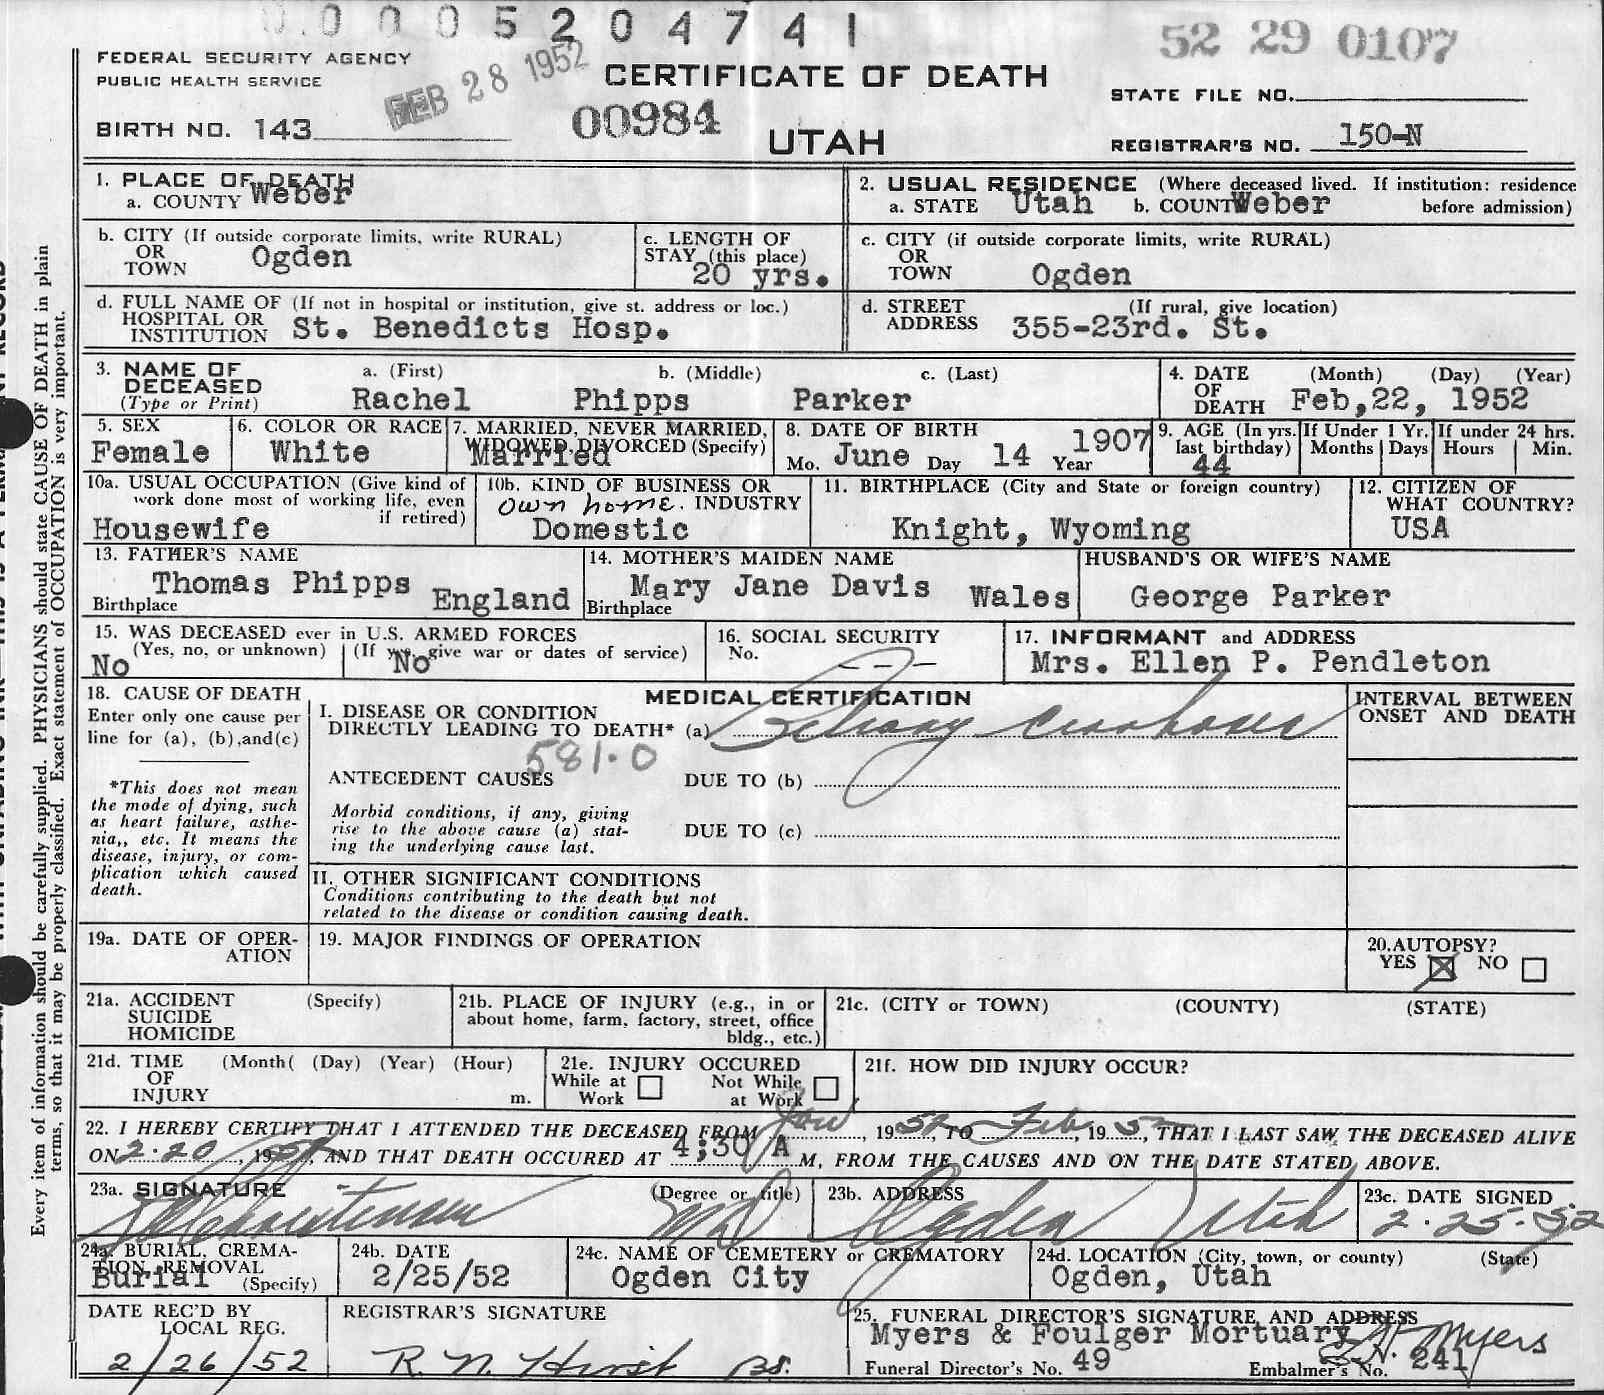 0 0 0 0 5 2 0 4 7 4 1
52 29 0107
FEDERAL SECURITY AGENCY
PUBLIC HEALTH SERVICE
FEB 28 1952
CERTIFICATE OF DEATH
STATE FILE NO.
BIRTH NO. 143
00984
UTAH
REGISTRAR'S NO. 150-N
1. PLACE OF DEATH
a. COUNTY Weber
2. USUAL RESIDENCE (Where deceased lived. If institution: residence
a. STATE Utah b. COUNTY Weber before admission)
b. CITY (If outside corporate limits, write RURAL)
OR
TOWN Ogden
c. LENGTH OF
STAY (this place)
20 yrs.
c. CITY (if outside corporate limits, write RURAL)
OR
TOWN Ogden
d. FULL NAME OF (If not in hospital or institution, give st. address or loc.)
HOSPITAL OR
INSTITUTION St. Benedicts Hosp.
d. STREET (If rural, give location)
ADDRESS 355-23rd. St.
3. NAME OF a. (First) b. (Middle) c. (Last)
DECEASED
(Type or Print) Rachel Phipps Parker
4. DATE (Month) (Day) (Year)
OF
DEATH Feb,22, 1952
5. SEX
Female
6. COLOR OR RACE
White
7. MARRIED, NEVER MARRIED,
WIDOWED, DIVORCED (Specify)
Married
8. DATE OF BIRTH
Mo. June Day 14 Year 1907
9. AGE (In yrs.
last birthday)
44
If Under 1 Yr.
Months Days
If under 24 hrs.
Hours Min.
10a. USUAL OCCUPATION (Give kind of
work done most of working life, even
if retired)
Housewife
10b. KIND OF BUSINESS OR
own home. INDUSTRY
Domestic
11. BIRTHPLACE (City and State or foreign country)
Knight, Wyoming
12. CITIZEN OF
WHAT COUNTRY?
USA
13. FATHER'S NAME
Thomas Phipps
Birthplace England
14. MOTHER'S MAIDEN NAME
Mary Jane Davis
Birthplace Wales
HUSBAND'S OR WIFE'S NAME
George Parker
15. WAS DECEASED ever in U.S. ARMED FORCES
(Yes, no, or unknown) (If yes, give war or dates of service)
No No
16. SOCIAL SECURITY
No. - - -
17. INFORMANT and ADDRESS
Mrs. Ellen P. Pendleton
18. CAUSE OF DEATH
Enter only one cause per
line for (a), (b),and(c)
*This does not mean
the mode of dying, such
as heart failure, asthe-
nia,, etc. It means the
disease, injury, or com-
plication which caused
death.
MEDICAL CERTIFICATION
I. DISEASE OR CONDITION
DIRECTLY LEADING TO DEATH* (a) Biliary cirrhosis
581.0
ANTECEDENT CAUSES DUE TO (b)
Morbid conditions, if any, giving
rise to the above cause (a) stat-
ing the underlying cause last.
DUE TO (c)
INTERVAL BETWEEN
ONSET AND DEATH
II. OTHER SIGNIFICANT CONDITIONS
Conditions contributing to the death but not
related to the disease or condition causing death.
19a. DATE OF OPER-
ATION
19. MAJOR FINDINGS OF OPERATION
20.AUTOPSY?
YES X NO
21a. ACCIDENT (Specify)
SUICIDE
HOMICIDE
21b. PLACE OF INJURY (e.g., in or
about home, farm, factory, street, office
bldg., etc.)
21c. (CITY or TOWN) (COUNTY) (STATE)
21d. TIME (Month( (Day) (Year) (Hour)
OF
INJURY m.
21e. INJURY OCCURED
While at Not While
Work at Work
21f. HOW DID INJURY OCCUR?
22. I HEREBY CERTIFY THAT I ATTENDED THE DECEASED FROM Jan, 1952, TO Feb, 1952, THAT I LAST SAW THE DECEASED ALIVE
ON 2-20, 1952, AND THAT DEATH OCCURED AT 4;30 A M, FROM THE CAUSES AND ON THE DATE STATED ABOVE.
23a. SIGNATURE (Degree or title)
MD
23b. ADDRESS
Ogden Utah
23c. DATE SIGNED
2-25-52
24a. BURIAL, CREMA-
TION REMOVAL
(Specify)
Burial
24b. DATE
2/25/52
24c. NAME OF CEMETERY or CREMATORY
Ogden City
24d. LOCATION (City, town, or county) (State)
Ogden, Utah
DATE REC'D BY
LOCAL REG.
2/26/52
REGISTRAR'S SIGNATURE
R. N. Hirst
25. FUNERAL DIRECTOR'S SIGNATURE AND ADDRESS
Myers & Foulger Mortuary
Myers
Funeral Director's No. 49 Embalmer's No. 241
Every item of information should be carefully supplied. PHYSICIANS should state CAUSE OF DEATH in plain
terms, so that it may be properly classified. Exact statement of OCCUPATION is very important.